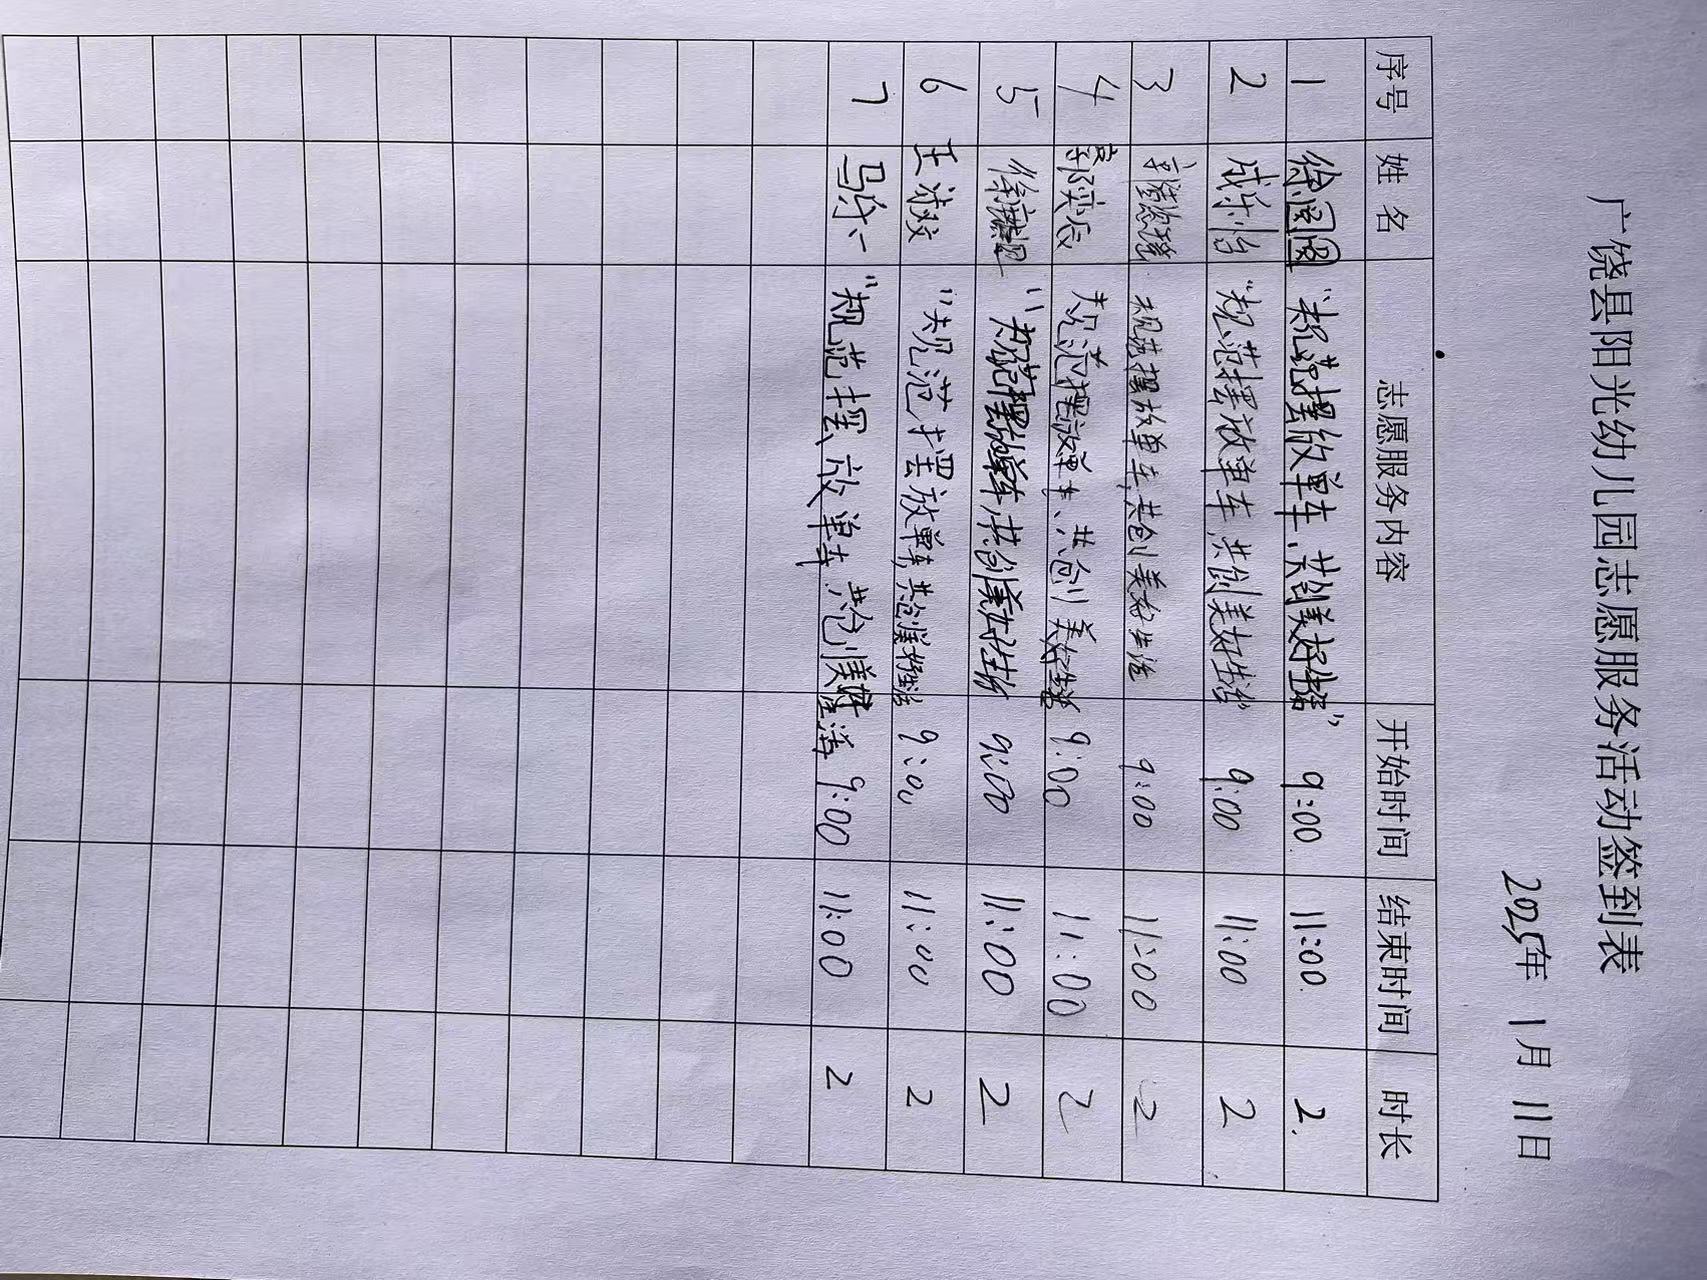 广饶县阳光幼儿园志愿服务活动签到表
2025年 1月 11日
序号 姓名 志愿服务内容 开始时间 结束时间 时长
1 徐圆圆 "规范摆放单车、共创美好生活" 9:00 11:00 2
2 成许怡 "规范摆放单车,共创美好生活" 9:00 11:00 2
3 规范摆放单车,共创美好生活 9:00 11:00 2
4 郭奕辰 规范摆放单车、共创美好生活 9:00 11:00 2
5 "规范摆放单车,共创美好生活 9:00 11:00 2
6 王淑姣 "规范摆放单车,共创美好生活 9:00 11:00 2
7 马许一 "规范摆放单车,共创美好生活 9:00 11:00 2